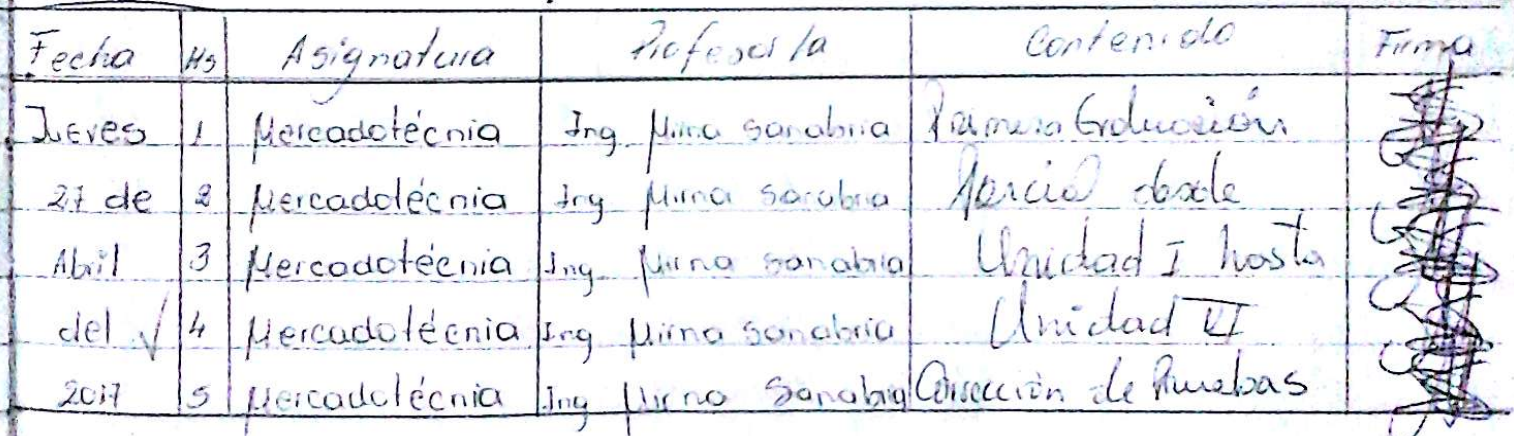 Fecha Hs Asignatura Profesor/a Contenido Firma
Jueves 1 Mercadotécnia Ing Mirna Sanabria Primera Evaluación
27 de 2 Mercadotécnia Ing Mirna Sanabria Parcial desde
Abril 3 Mercadotécnia Ing Mirna Sanabria Unidad I hasta
del √ 4 Mercadotécnia Ing Mirna Sanabria Unidad VI
2017 5 Mercadotécnia Ing Mirna Sanabria Corrección de Pruebas